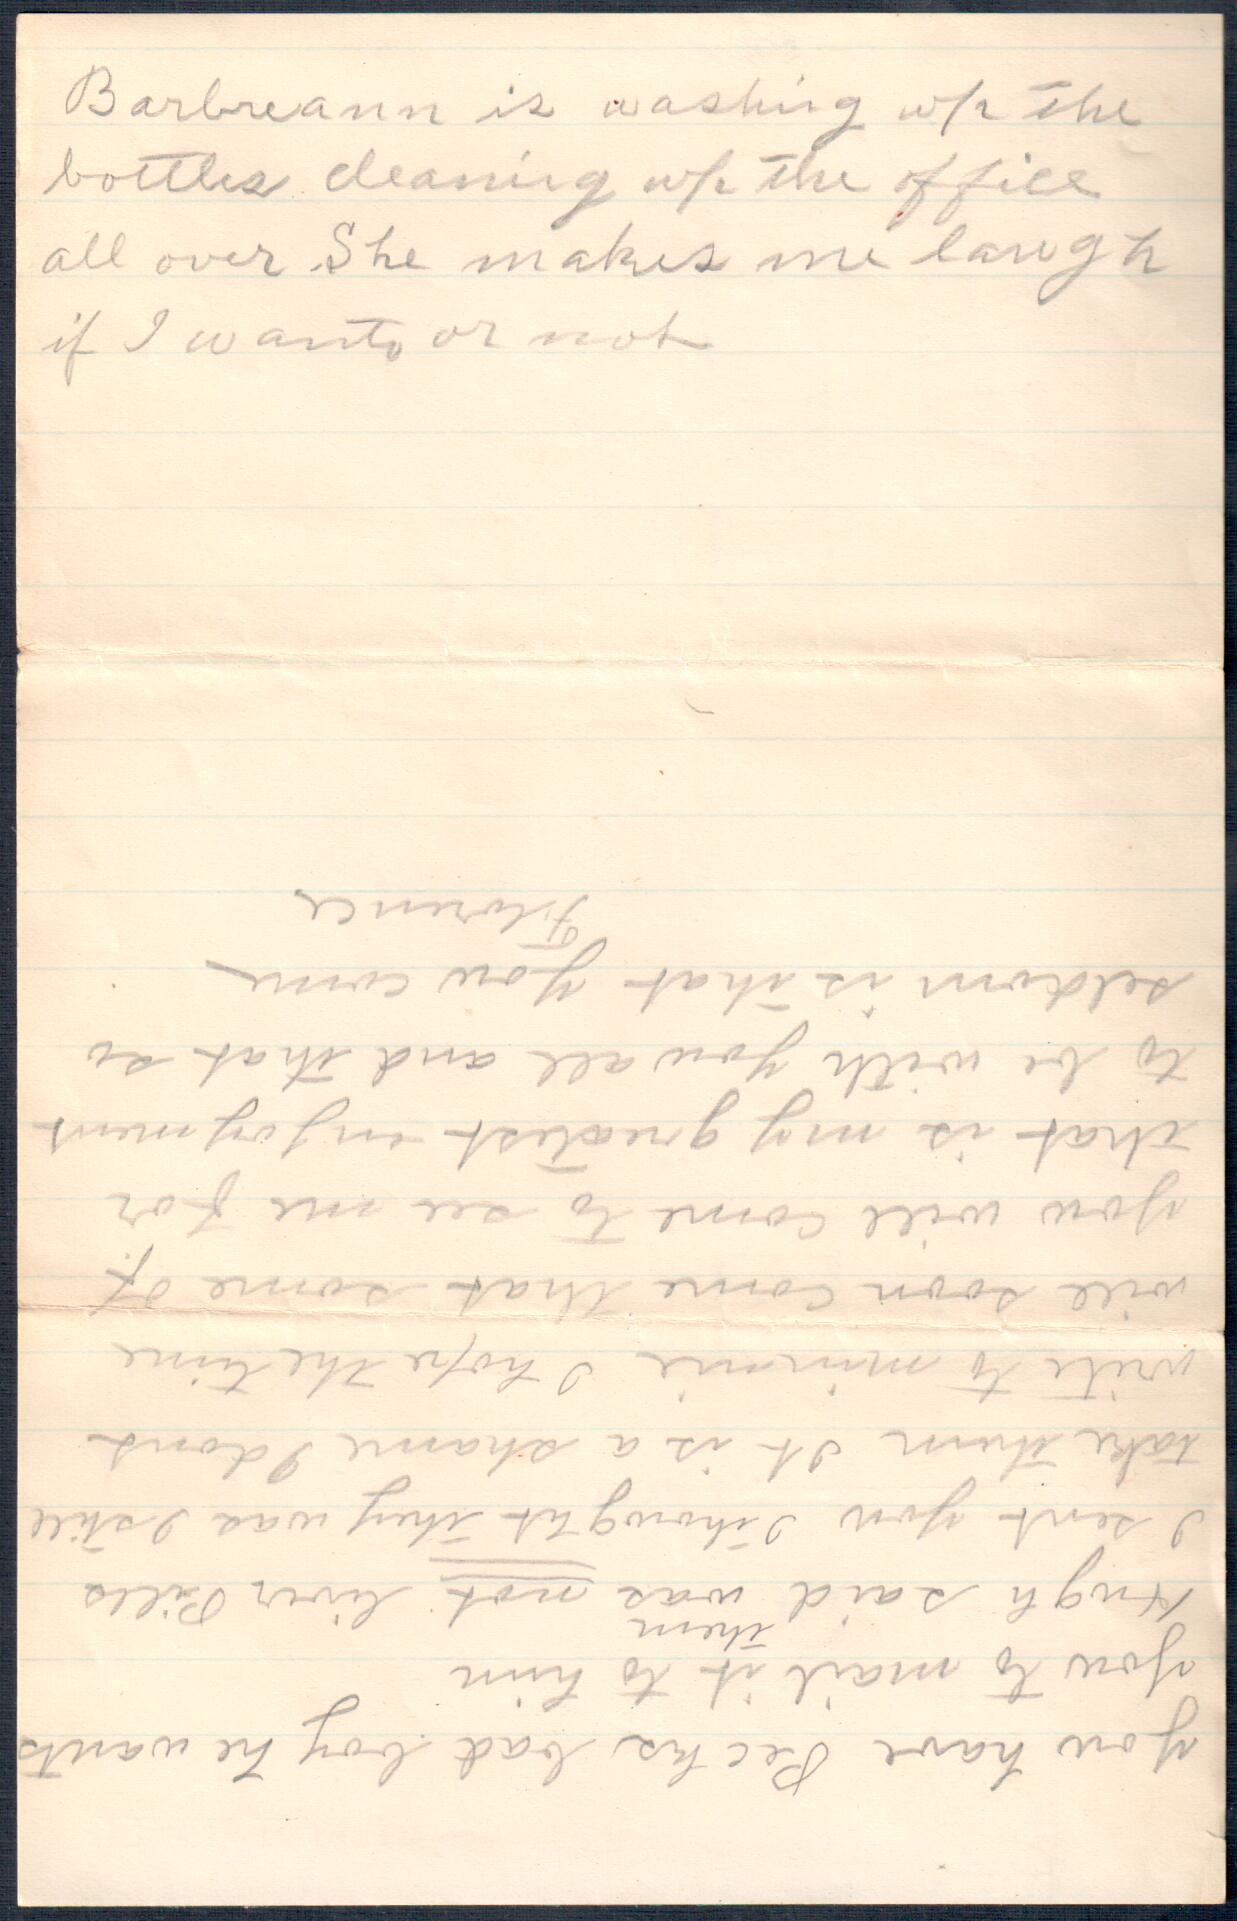 Barbreann is washing up the
bottles cleaning up the office
all over She makes me laugh
if I wants or not
you have Pecks bad boy he wants
you to mail it to him
them
Hugh said was not liver Pills
I sent you I thought they was I still
take them It is a shame I dont
write to minnie I hope the time
will soon come that some of
you will come to see me for
that is my greatest enjoyment
to be with you all and that so
seldom is that you come
Florence